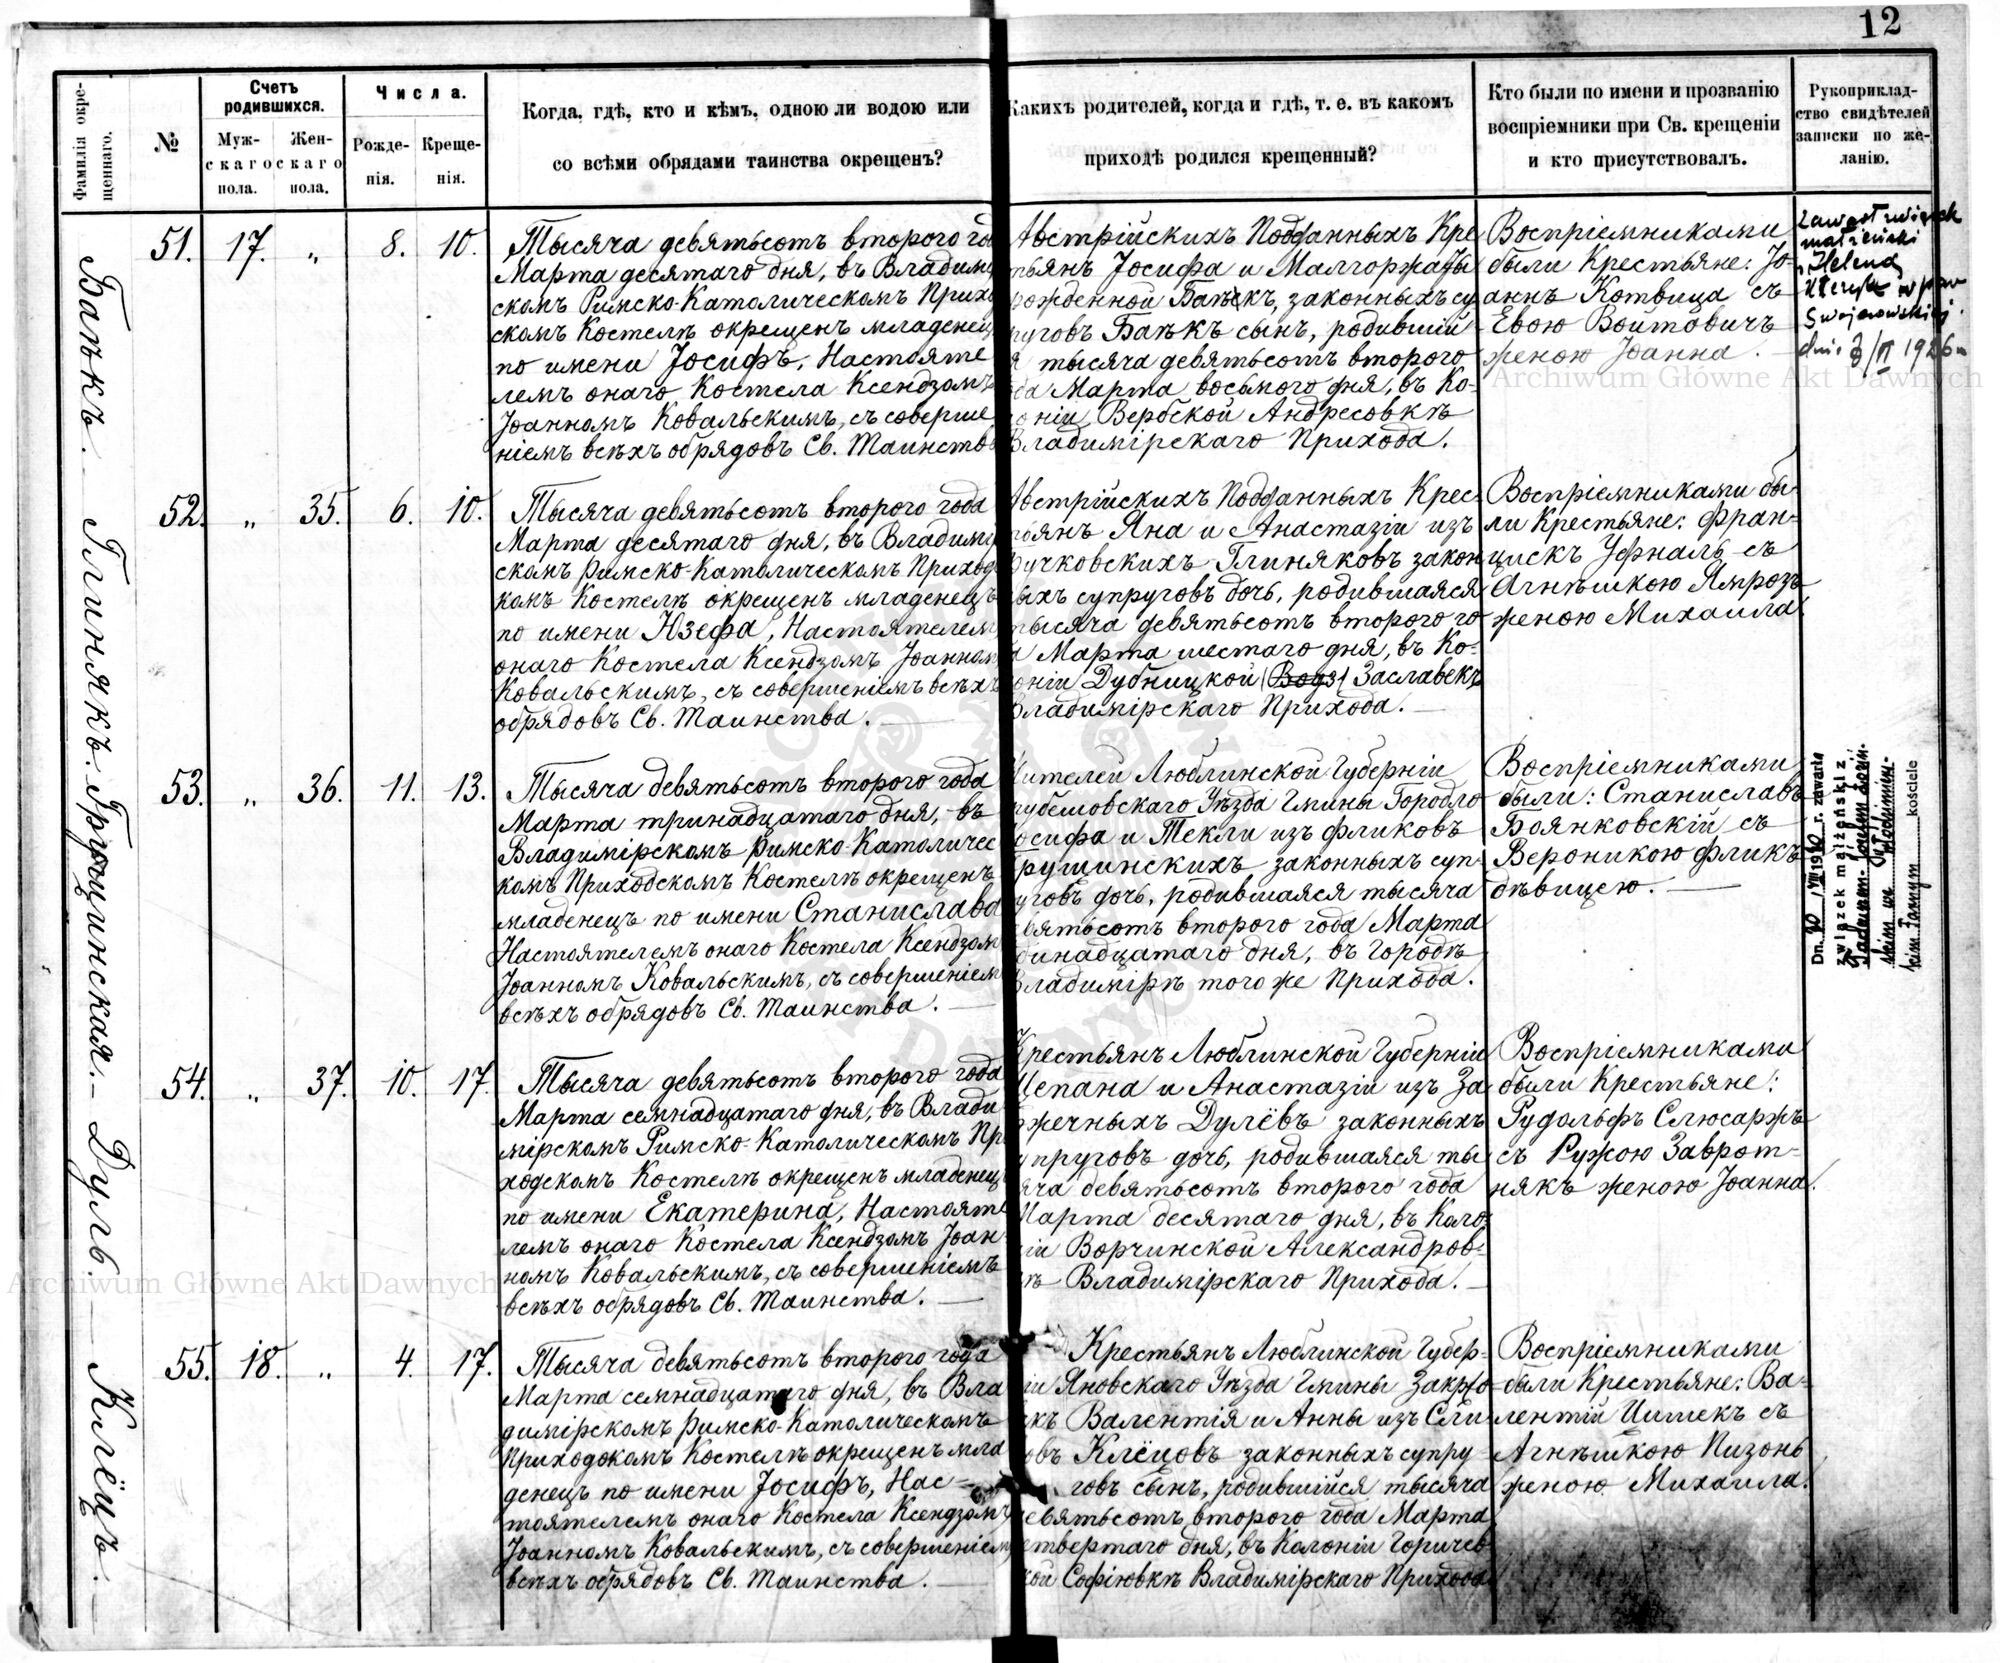 12
Фамилія окре-
щеннаго.
№
Счетъ
родившихся.
Муж-
скаго
пола.
Жен-
скаго
пола.
Числа.
Рожде-
нія.
Креще-
нія.
Когда, гдѣ, кто и кѣмъ, одною ли водою или
со всѣми обрядами таинства окрещенъ?
Какихъ родителей, когда и гдѣ, т. е. въ какомъ
приходѣ родился крещенный?
Кто были по имени и прозванію
воспріемники при Св. крещеніи
и кто присутствовалъ.
Рукоприклад-
ство свидѣтелей
записки по же-
ланію.
Банькъ.
51. 17. „ 8. 10.
Тысяча девятьсотъ второго го
Марта десятаго дня, въ Владимі
скомъ Римско-Католическомъ Прихо
скомъ Костелѣ окрещенъ младенец
по имени Іосифъ, Настояте
лемъ онаго Костела Ксендзомъ
Іоанномъ Ковальскимъ, съ соверше
ніемъ всѣхъ обрядовъ Св. Таинств
Австрійскихъ Подданныхъ Кре
тьянъ Іосифа и Малгоржаты
рожденной законныхъ су
пруговъ сынъ, родившій
я тысяча девятьсотъ второго
да Марта восьмого дня, въ Ко-
оніи Вербской Андресовкѣ
Владимірскаго Прихода.
Воспріемниками
были Крестьяне: Іо-
аннъ Котвица съ
Евою Войтовичъ
женою Іоанна.
Zawarł związek
małżeński
z Heleną
w par
Swojczowskiej
dnia /II 1926
Archiwum Główne Akt Dawnych
Глинякъ.
52. „ 35. 6. 10.
Тысяча девятьсотъ второго года
Марта десятаго дня, въ Владимі
скомъ Римско-Католическомъ Приход
комъ Костелѣ окрещенъ младенецъ
по имени Юзефа, Настоятелем
онаго Костела Ксендзомъ Іоанном
Ковальскимъ, съ совершеніемъ всѣхъ
обрядовъ Св. Таинства.
Австрійскихъ Подданныхъ Крес
тьянъ Яна и Анастазіи изъ
Бучковскихъ Глиняковъ закон
ныхъ супруговъ дочь, родившаяся
тысяча девятьсотъ второго го
а Марта шестаго дня, въ Ко-
оніи Дубницкой Заславекъ
Владимірскаго Прихода.
Воспріемниками бы-
ли Крестьяне: Фран-
цискъ Уфналь съ
Агнѣшкою Ямрозъ
женою Михаила.
Грущинская.
53. „ 36. 11. 13.
Тысяча девятьсотъ второго года
Марта тринадцатаго дня, въ
Владимірскомъ Римско-Католичес
комъ Приходскомъ Костелѣ окрещенъ
младенецъ по имени Станислава
Настоятелемъ онаго Костела Ксендзом
Іоанномъ Ковальскимъ, съ совершеніем
всѣхъ обрядовъ Св. Таинства.
ителей Люблинской Губерніи
рубешовскаго Уѣзда Гмины Городло
Іосифа и Текли изъ Фликовъ
рущинскихъ законныхъ суп-
уговъ дочь, родившаяся тысяча
евятьсотъ второго года Марта
динадцатаго дня, въ Городѣ
Владимірѣ того же Прихода.
Воспріемниками
были: Станиславъ
Боянковскій съ
Вероникою Фликъ
дѣвицею.
Dn. 30 VII 1930 r. zawarła
związek małżeński z
kościele
Дуль.
54. „ 37. 10. 17.
Тысяча девятьсотъ второго года
Марта семнадцатаго дня, въ Влади
мірскомъ Римско-Католическомъ Пр
ходскомъ Костелѣ окрещенъ младенец
по имени Екатерина, Настояте
лемъ онаго Костела Ксендзомъ Іоан-
номъ Ковальскимъ, съ совершеніемъ
всѣхъ обрядовъ Св. Таинства.
Крестьянъ Люблинской Губерніи
Щепана и Анастазіи изъ За
жечныхъ Дулёвъ законныхъ
упруговъ дочь, родившаяся ты
яча девятьсотъ второго года
Марта десятаго дня, въ Коло-
іи Ворчинской Александров-
кѣ Владимірскаго Прихода.
Воспріемниками
были Крестьяне:
Рудольфъ Слюсаржъ
съ Ружою Заврот-
някъ женою Іоанна.
Archiwum Główne Akt Dawnych
Клёцъ.
55. 18. „ 4. 17.
Тысяча девятьсотъ второго года
Марта семнадцатаго дня, въ Вла
димірскомъ Римско-Католическомъ
Приходскомъ Костелѣ окрещенъ мла
денецъ по имени Іосифъ, Нас-
тоятелемъ онаго Костела Ксендзомъ
Іоанномъ Ковальскимъ, съ совершеніем
всѣхъ обрядовъ Св. Таинства.
Крестьянъ Люблинской Губер-
іи Яновскаго Уѣзда Гмины Закржо
къ Валентія и Анны изъ Сли
овъ Клёцовъ законныхъ супру-
говъ сынъ, родившійся тысяча
девятьсотъ второго года Марта
четвертаго дня, въ Колоніи Горичев
кой Софіювкѣ Владимірскаго Прихода
Воспріемниками
были Крестьяне: Ва-
лентій Цишекъ съ
Агнѣшкою Пизонь
женою Михаила.